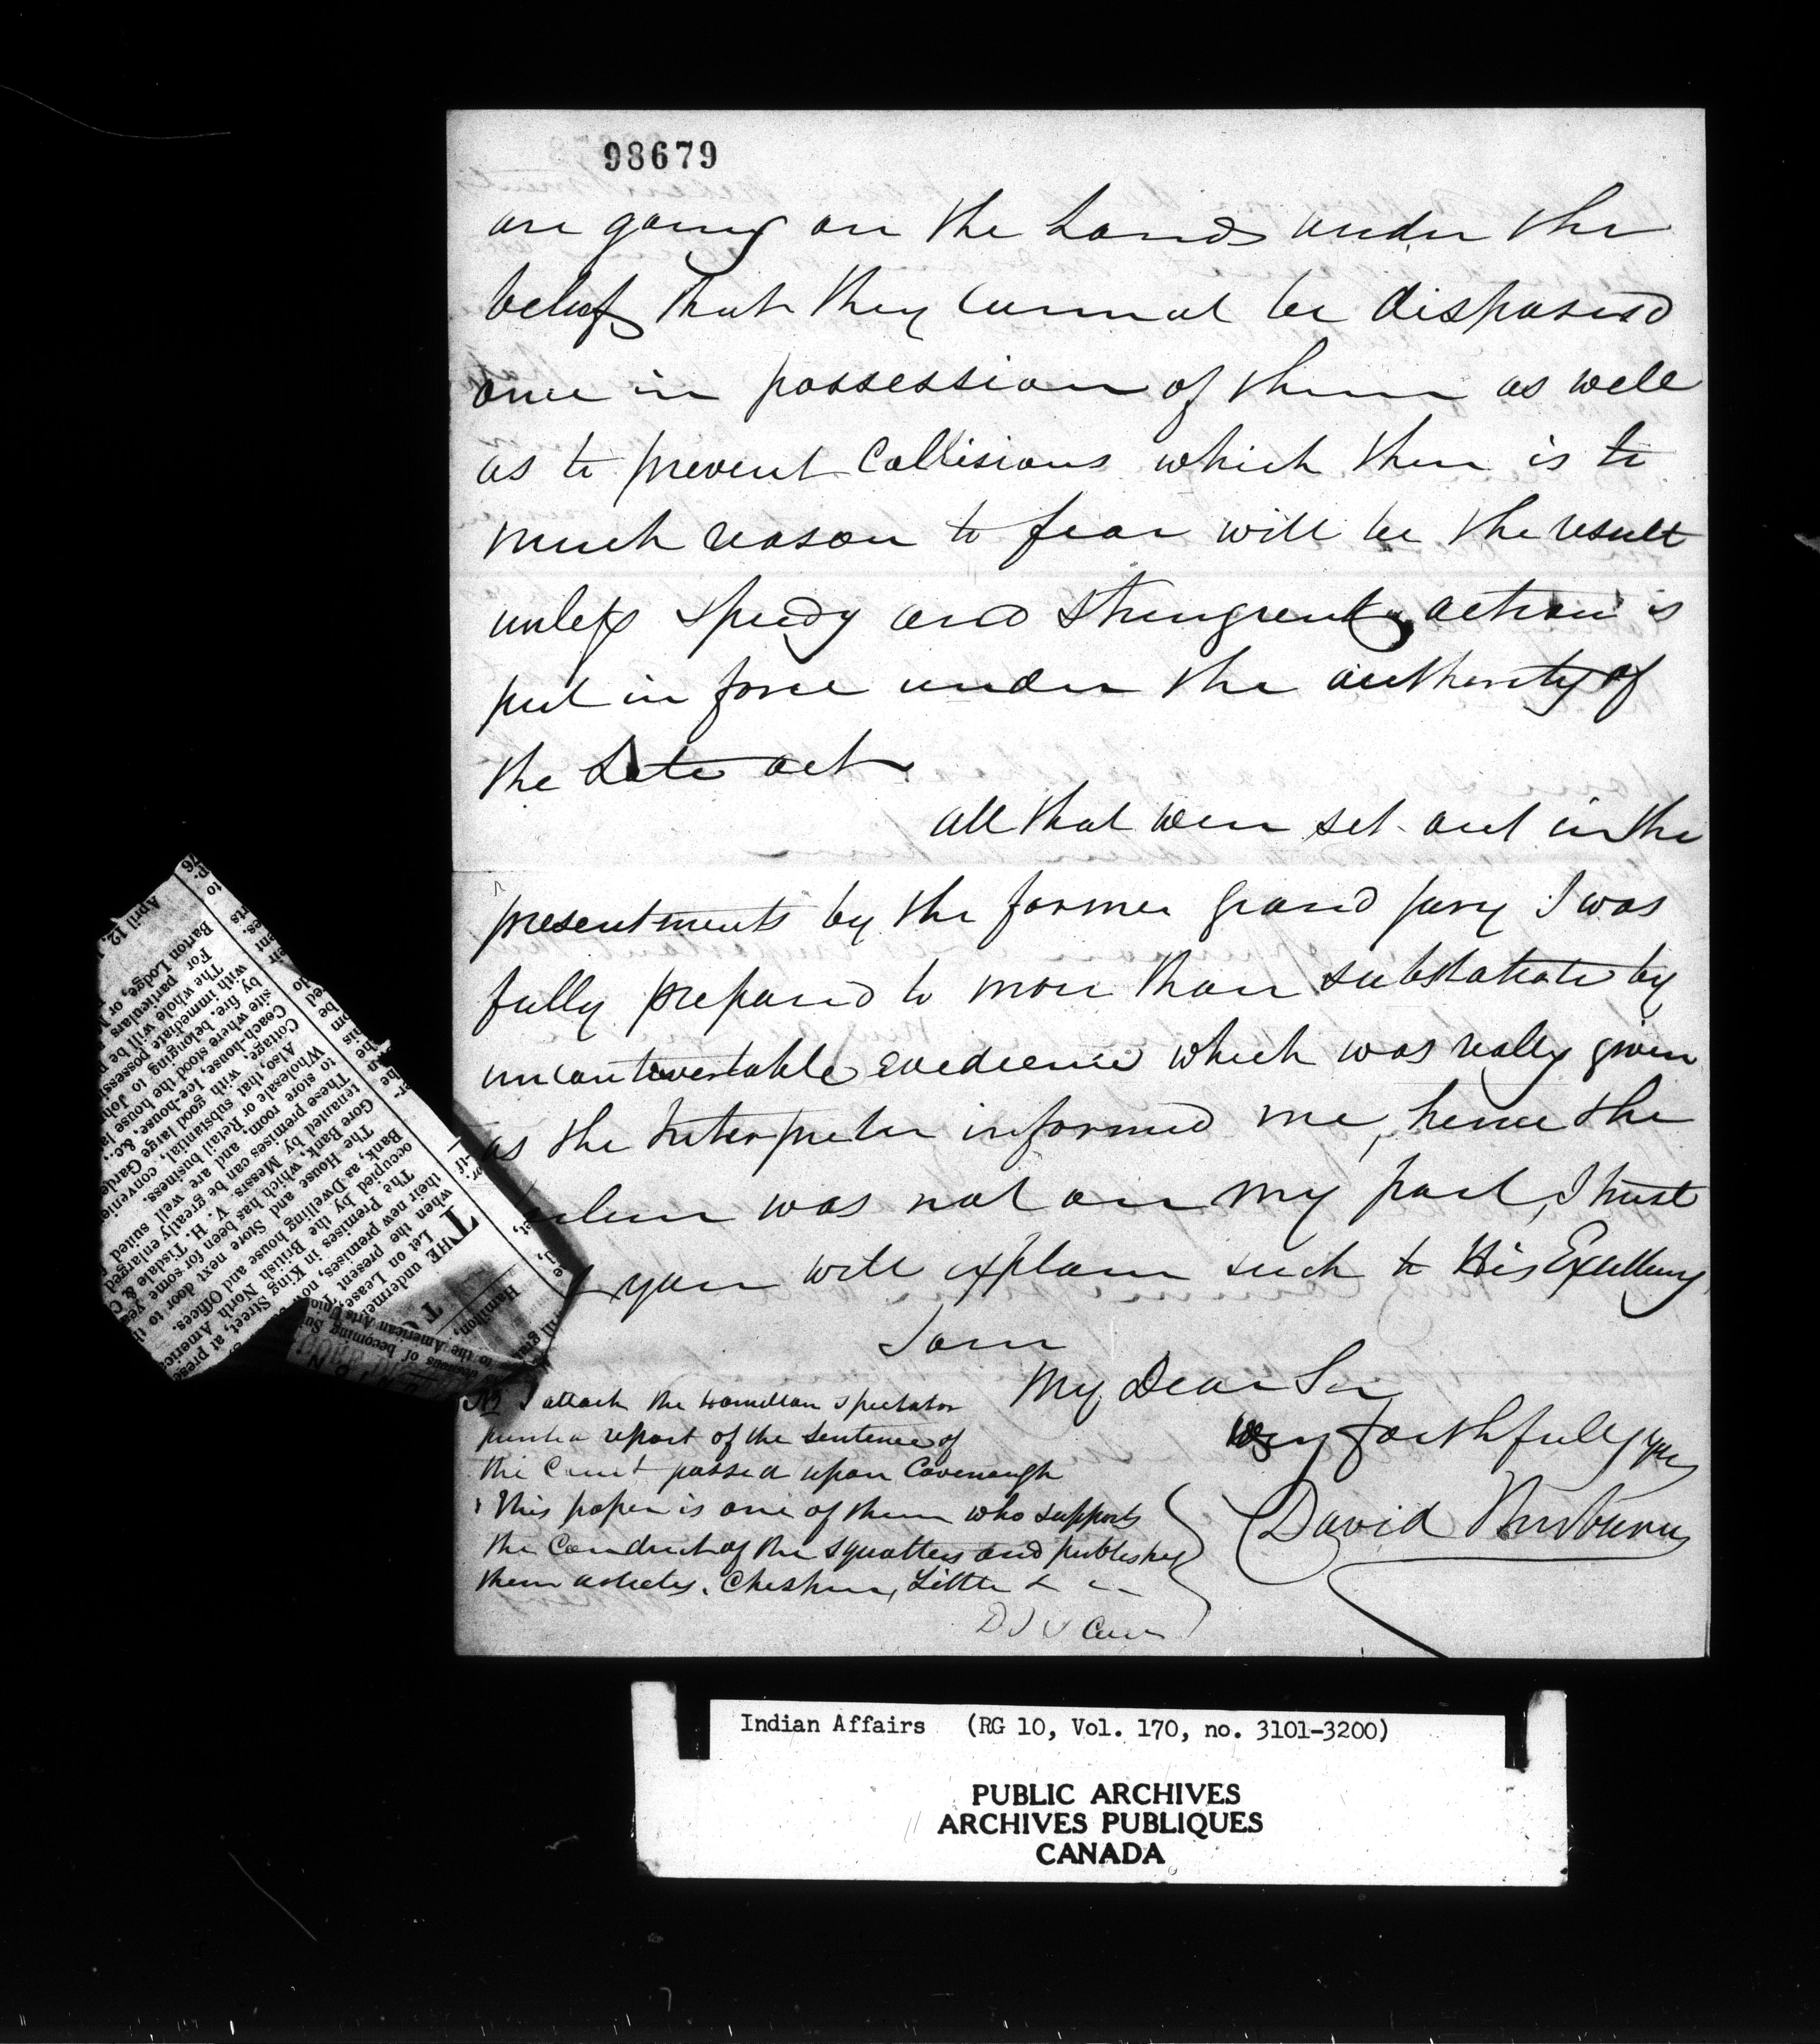 98679
are going on the Lands under the
belief that they cannot be disposesd
once in possession of them as well
as to prevent Collisions which there is to
much reason to fear will be the result
unless speedy and stringent action is
put in force under the authority of
the Late act
all that were set out in the
presentments by the former grand jury I was
fully prepared to more than substatiate by
uncontrovertable evedience which was really given
as the Interpreter informed me, hence the
was not on my part, I trust
you will explain such to His Excellency
I am
My Dear Sir
very faithfully yrs
David Thorburn
I attach the Hamilton Spectator
report of the sentence of
the Court passed upon Cavenaugh
this paper is one of them who supports
the Conduct of the squatters and publishes
them Cheshire, Little &
April 12,
Barton Lodge, or
For particulars
The whole will be
with immediate possess
by fire, belonging to Joh
site where stood the house la
Coach-house, Ice-house, &c.,
Cottage, with good large Garde
Also, that substantial, convenie
Wholesale or Retail business.
to store room, and are well suited
These premises can be greatly enlarged
tenanted by Messrs. V. H. Tisdale &
Gore Bank, which has been for some
The House and Store next door to
Bank, as Dwelling house and Offices.
occupied by the British North America
The Premises in King Street, at pres
their new premises, now
when the present
Let on Lease,
THE underment
Hamilton,
to the American Arts Unio
desirous of becoming Su
Indian Affairs (RG 10, Vol. 170, no. 3101-3200)
PUBLIC ARCHIVES
ARCHIVES PUBLIQUES
CANADA